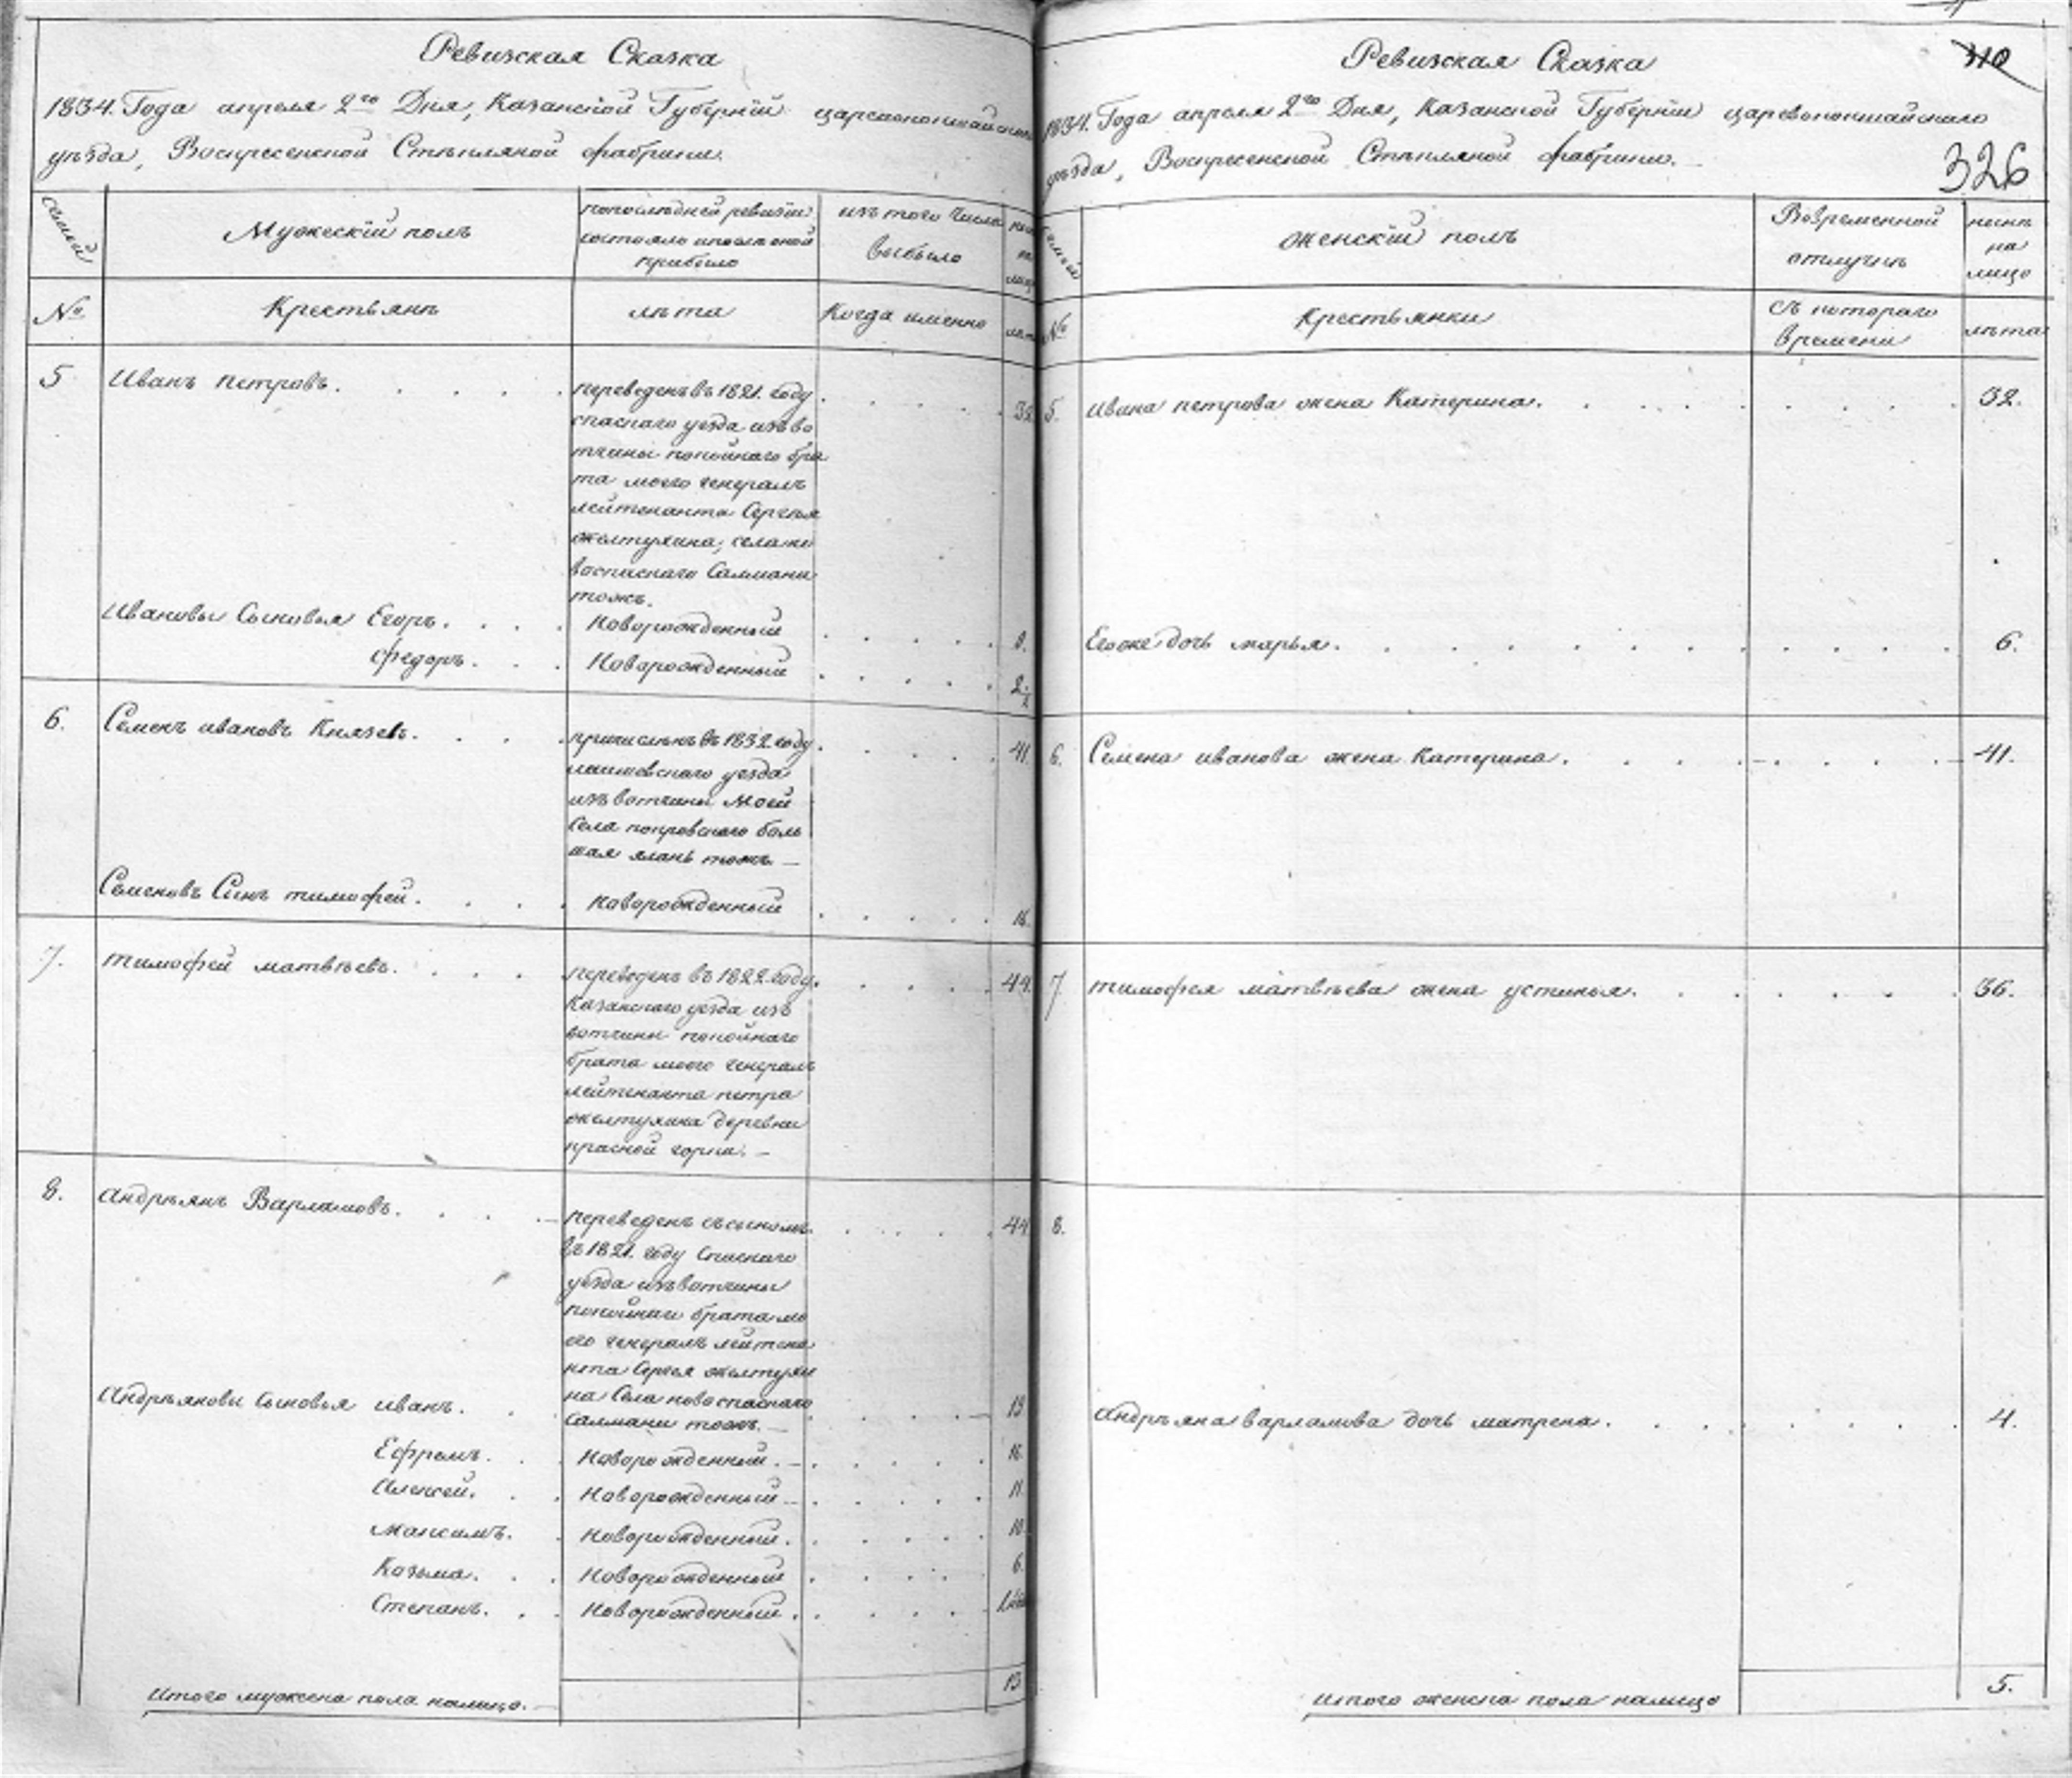 Ревизская Сказка
1834. Года апреля 2го Дня, Казанской Губернїи царевококшайскаго
уѣзда, Воскресенской Стѣкляной фабрики.
семьи
Мужескїй полъ
попослѣдней ревизїи
состояло ипослѣ оной
прибыло
изъ того числа
выбыло
№
Крестьянѣ
лѣта
Когда именно
5
Иванъ петровъ.
переведенъ въ 1821. году
спаскаго уезда изъ во
тчины покойнаго бра
та моего генералъ
лейтенанта Сергѣя
желтухина, села но
воспаскаго Салмани
тожъ.
Ивановы Сыновья Егоръ.
Новорожденный
федоръ.
Новорожденный
6.
Семенъ ивановъ Князевъ.
приписанъ въ 1832 году
41
лаишевскаго уезда
изъ вотчины Моей
Села покровскаго боль
шая елань тожъ
Семеновъ Сынъ тимофей.
Новорожденный
16.
7.
тимофей матвѣевъ.
переведенъ въ 1822. году.
44.
Казанскаго уезда изъ
вотчины покойнаго
брата моего генералъ
лейтенанта петра
желтухина деревни
красной горки.
8.
Андрѣянъ Варламовъ.
переведенъ съсыномъ
44
въ 1821. году Спаскаго
уезда изъ вотчины
покойнаго брата мо
его генералъ лейтена
нта Сергея желтухи
на Села новоспаскаго
Салмани тожъ.
Андрѣяновы сыновья иванъ.
19
Ефремъ.
Новорожденный.
16
Алексей.
Новорожденный
11
Максимъ.
Новорожденный.
10
Козьма.
Новорожденный
6.
Степанъ.
Новорожденный.
Итого мужеска пола налицо.
13
Ревизская Сказка
310
1834. Года апреля 2го Дня, Казанской Губернїи царевококшайскаго
уѣзда, Воскресенской Стѣкляной фабрики.
326
семьи
женскїй полъ
Вовременной
отлучкѣ
нынѣ
на
лицо
№
Крестьянки
Съ котораго
времени
лѣта
5.
ивана петрова жена Катерина.
32.
Егоже дочь марья.
6.
6.
Семена иванова жена Катерина.
41.
7
тимофея матвѣева жена устинья.
36.
8.
Андрѣяна варламова дочь матрена.
4.
Итого женска пола налицо
5.